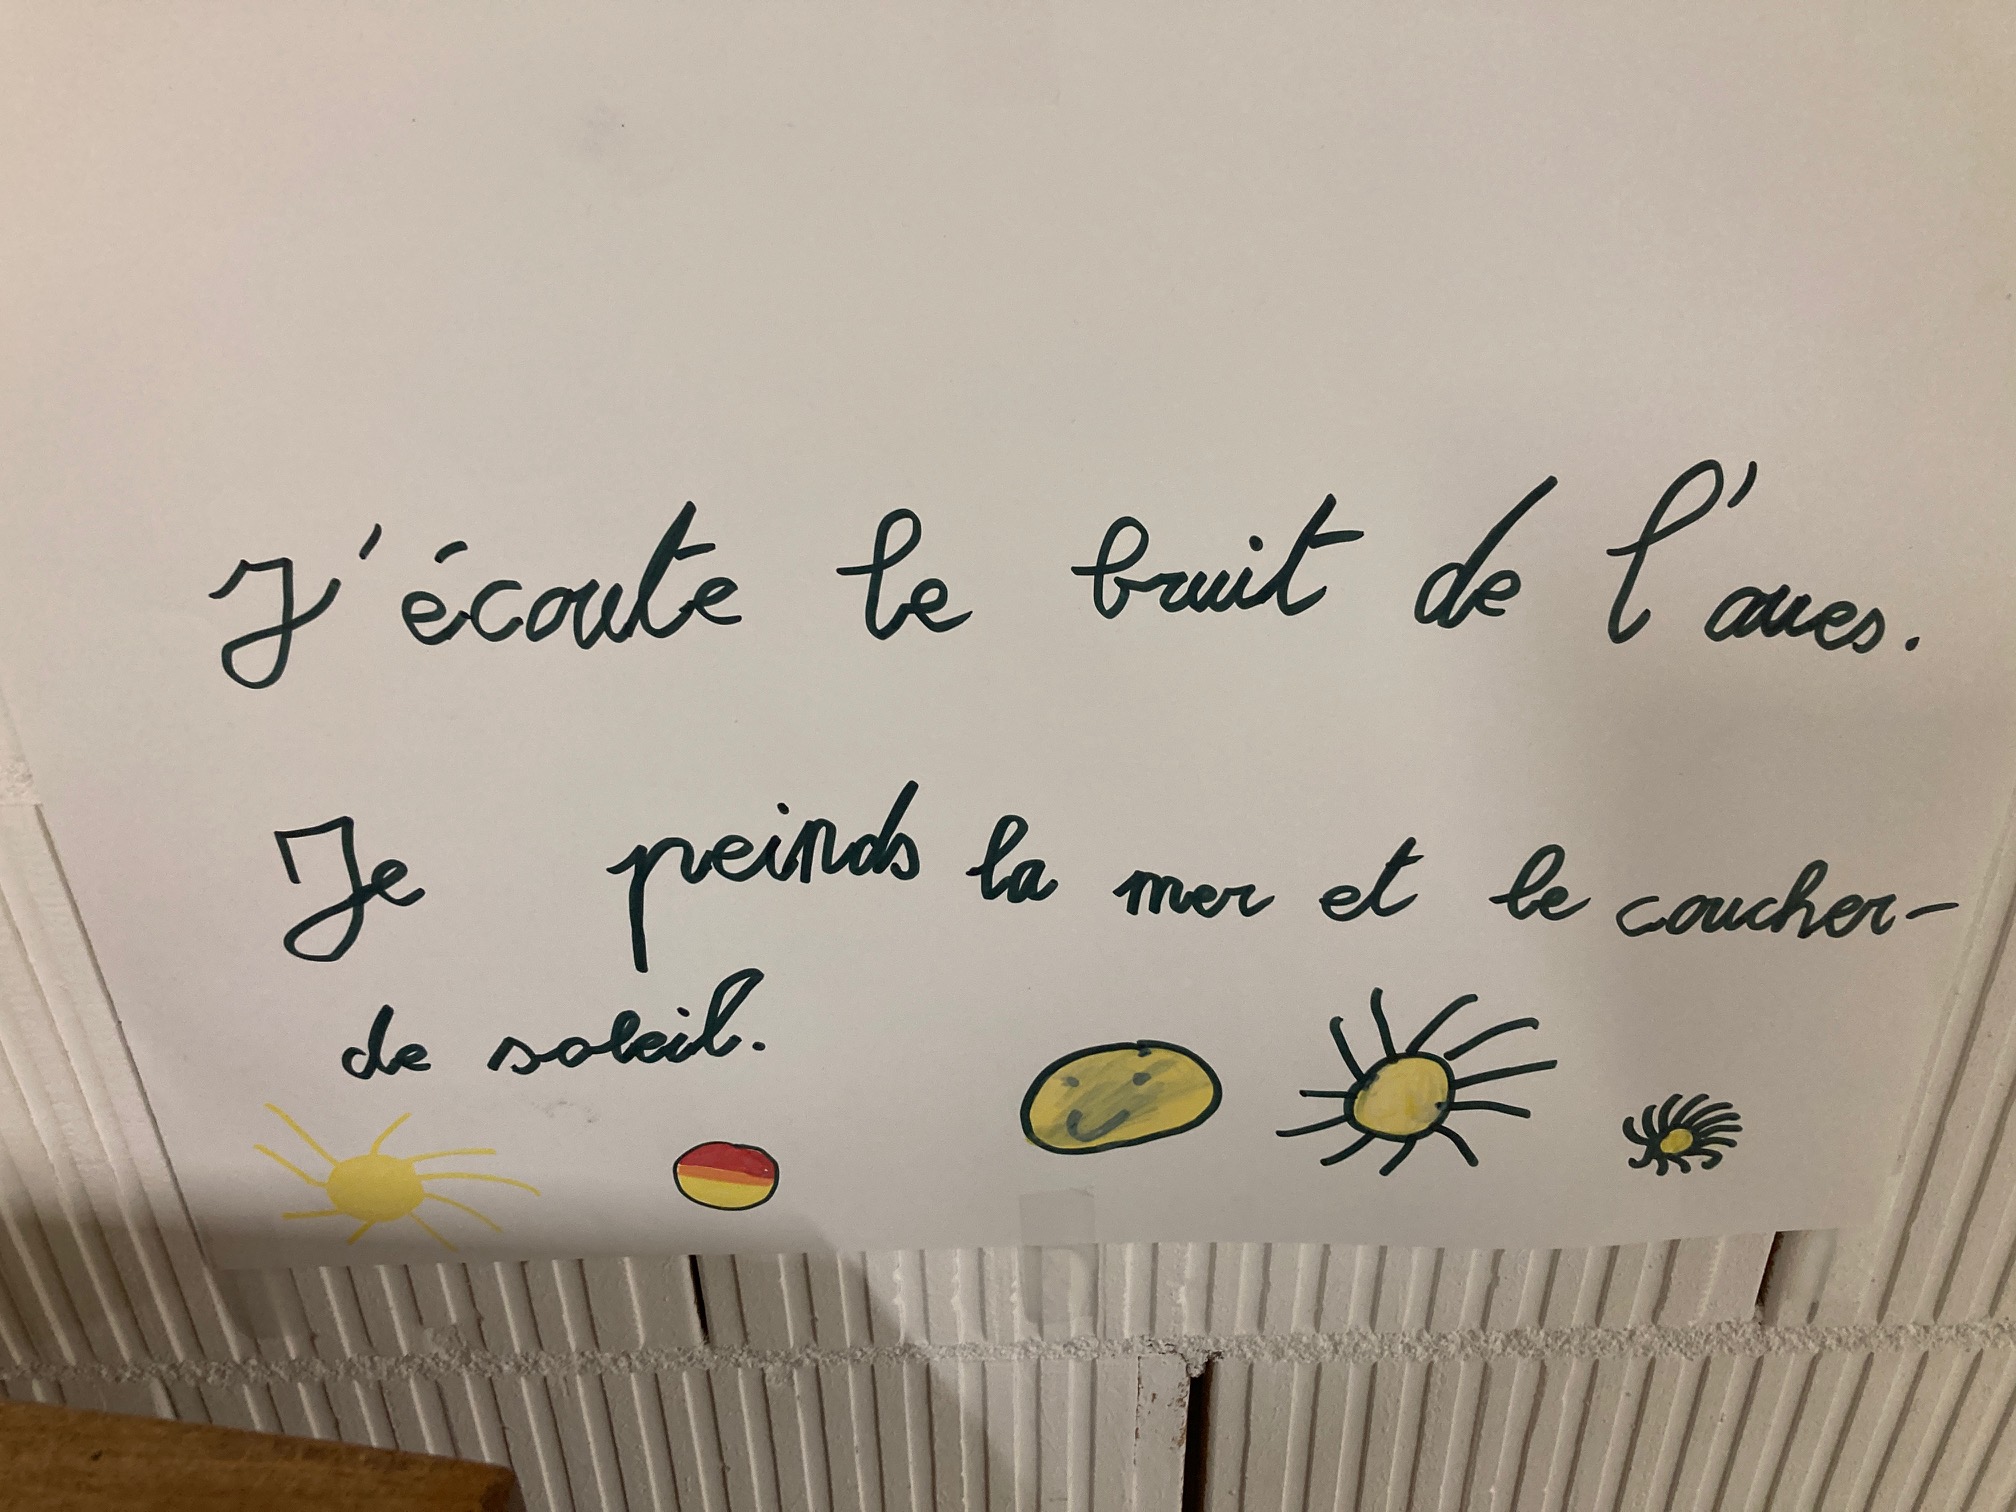 J'écoute le bruit de l'oues.
Je peinds la mer et le coucher-
de soleil.